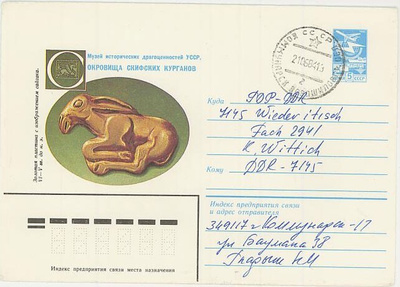 Музей исторических драгоценностей УССР.
СОКРОВИЩА СКИФСКИХ КУРГАНОВ
Золотая пластина с изображением зайца.
СССР
Куда РДР-DDR
7145 Wiederitzsch
Fach 2941
K. Wittich
Кому DDR-7145
Индекс предприятия связи
и адрес отправителя
349117 г Коммунарск-17
ул Баумана 38
Индекс предприятия связи места назначения